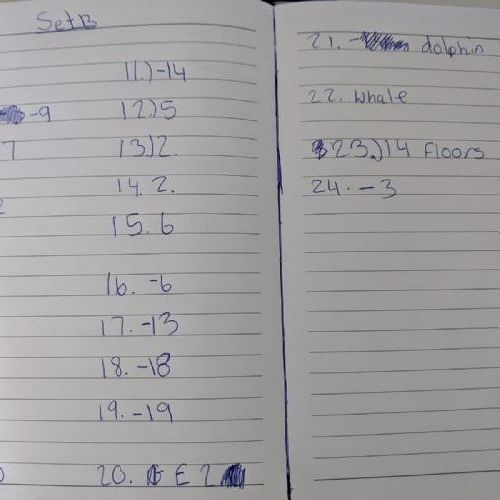 Set B
-9
7
2
11.) -14
12) 5
13) 2.
14. 2.
15. 6
16. -6
17. -13
18. -18
19. -19
20. E 2
21. dolphin
22. whale
23.) 14 floors
24. -3